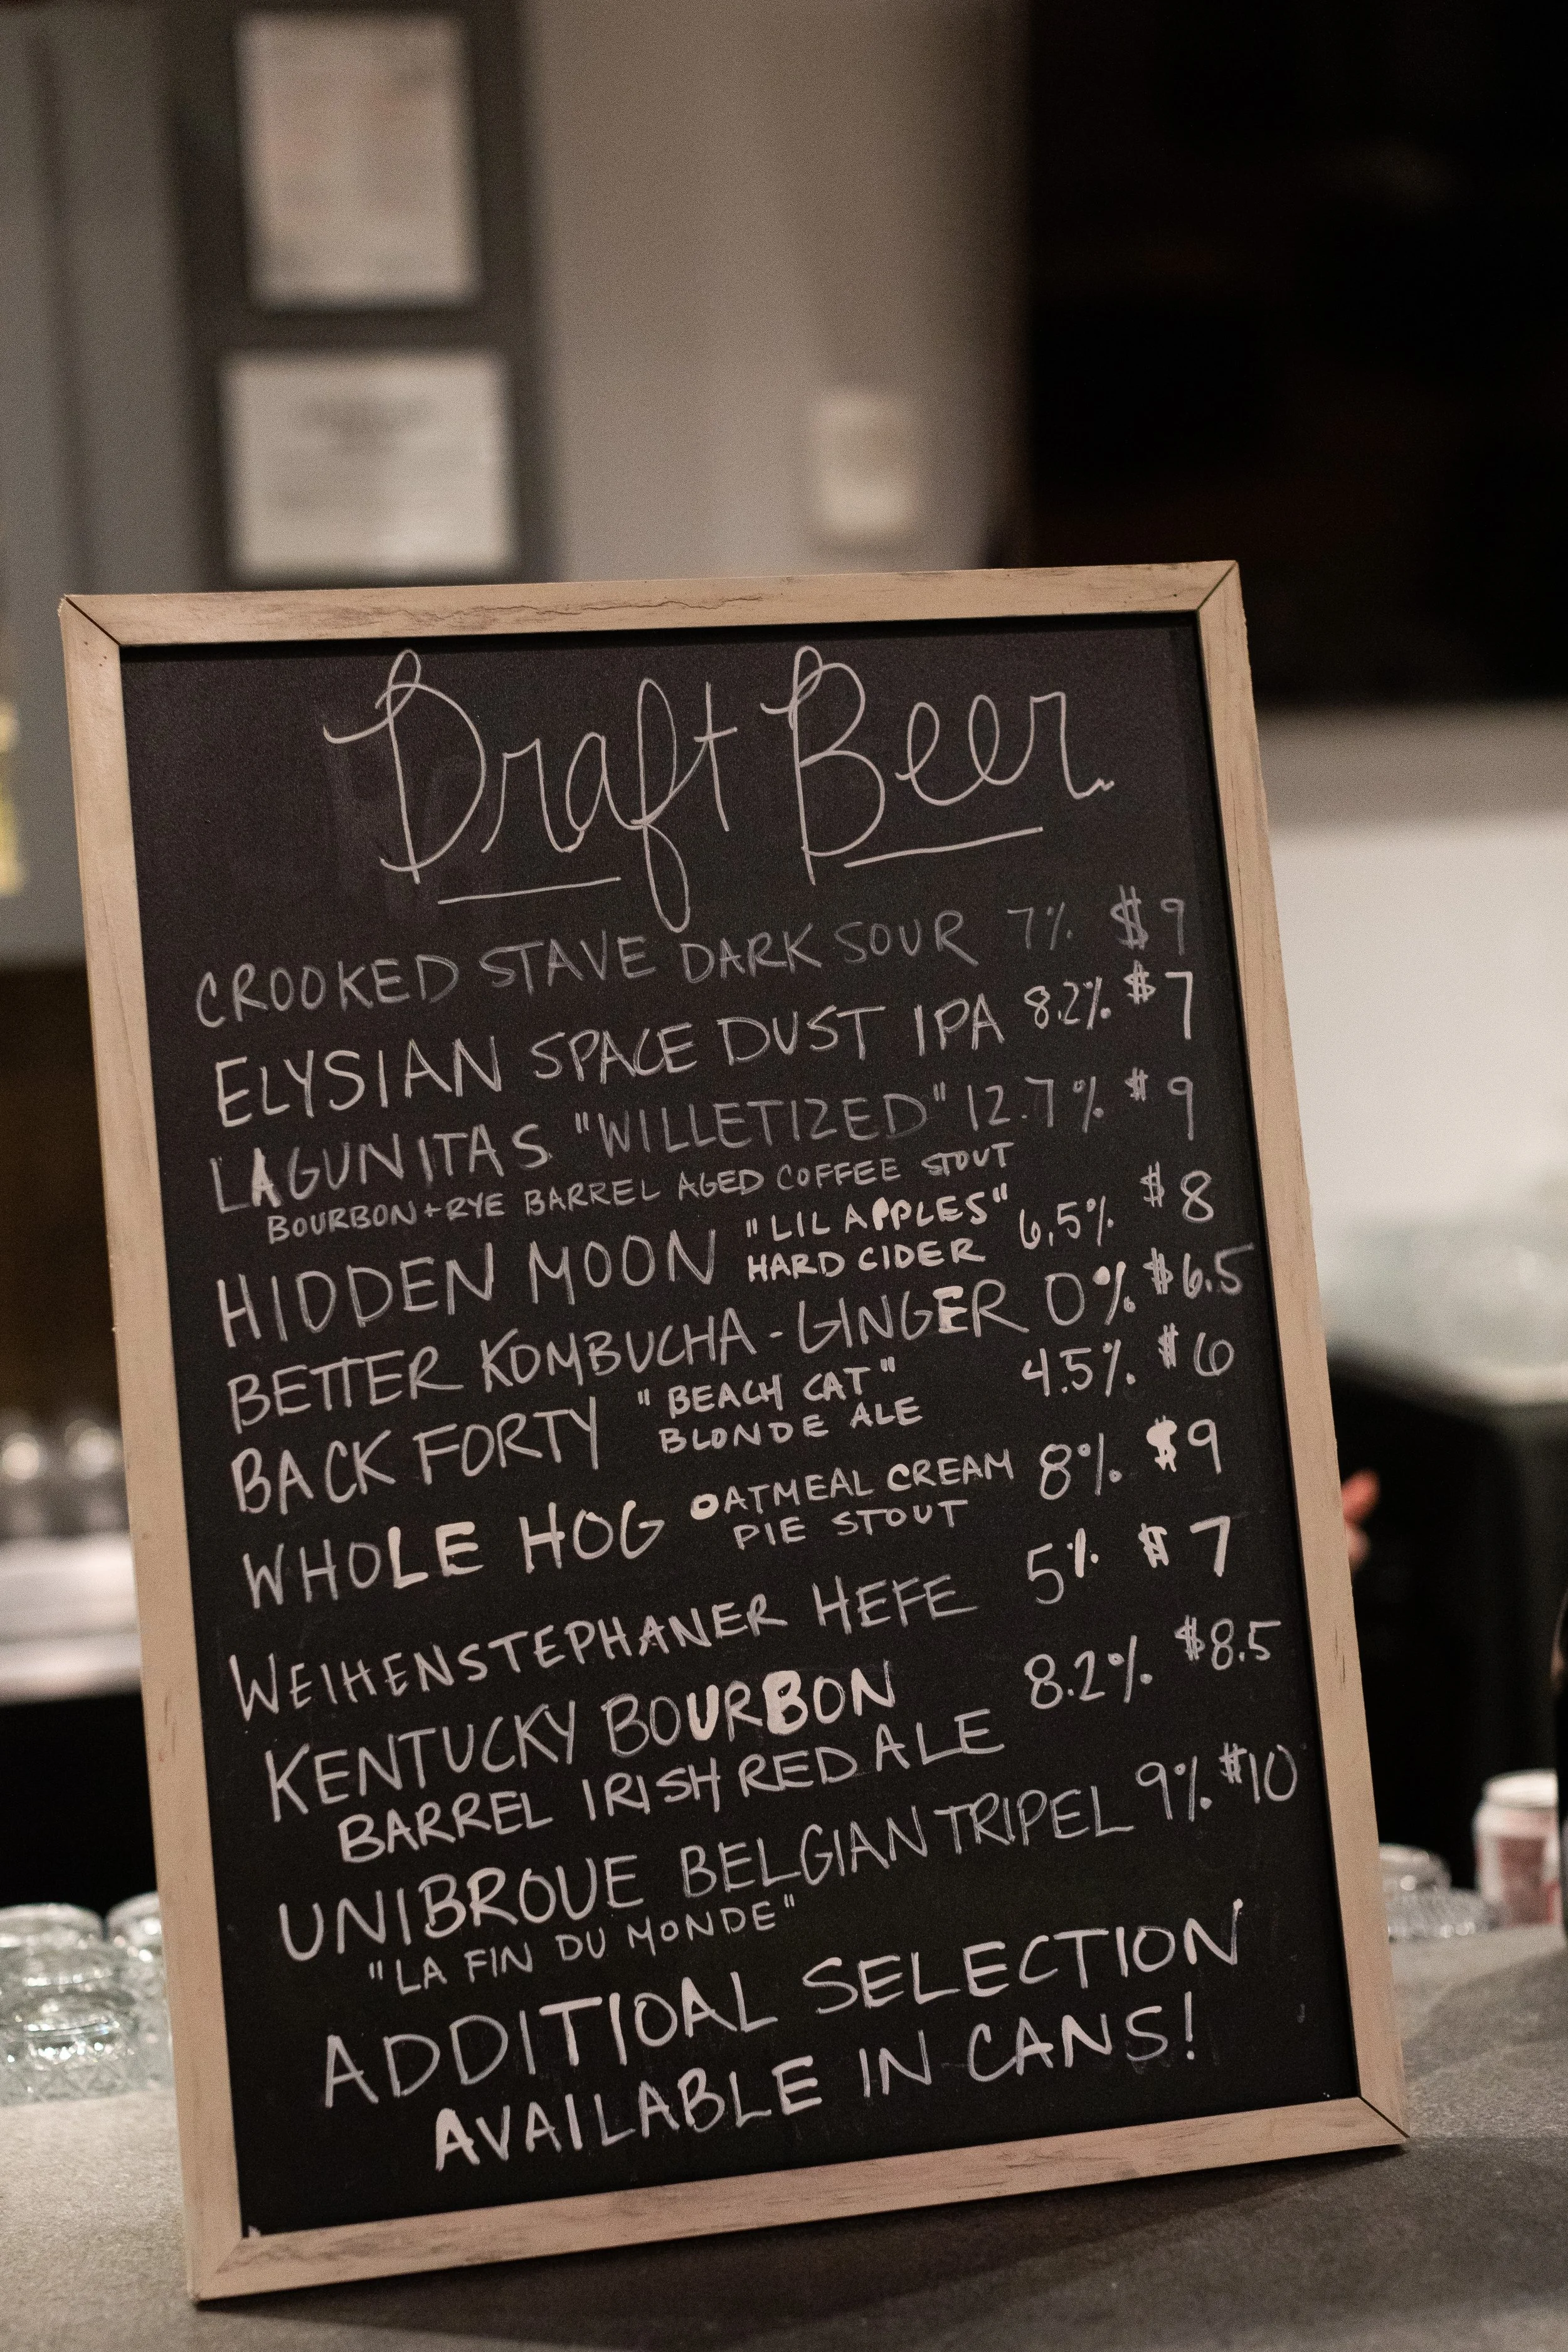 Draft Beer
CROOKED STAVE DARK SOUR 7% $9
ELYSIAN SPACE DUST IPA 8.2% $7
LAGUNITAS "WILLETIZED" 12.7% $9
BOURBON + RYE BARREL AGED COFFEE STOUT
HIDDEN MOON "LIL APPLES" 6.5% $8
HARD CIDER
BETTER KOMBUCHA - GINGER 0% $6.5
BACK FORTY "BEACH CAT" 4.5% $6
BLONDE ALE
WHOLE HOG OATMEAL CREAM 8% $9
PIE STOUT
WEIHENSTEPHANER HEFE 5% $7
KENTUCKY BOURBON 8.2% $8.5
BARREL IRISH RED ALE
UNIBROUE BELGIAN TRIPEL 9% $10
"LA FIN DU MONDE"
ADDITIOAL SELECTION
AVAILABLE IN CANS!